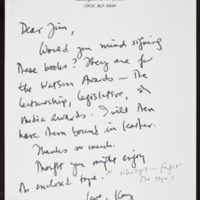 Dear Jim,
Would you mind signing
these books? They are for
the Watson Awards — the
lectureship, legislative, &
Media awards. I will then
have them bound in leather.
Thanks so much.
Thought you might enjoy
the enclosed tape. -
Love, Kay